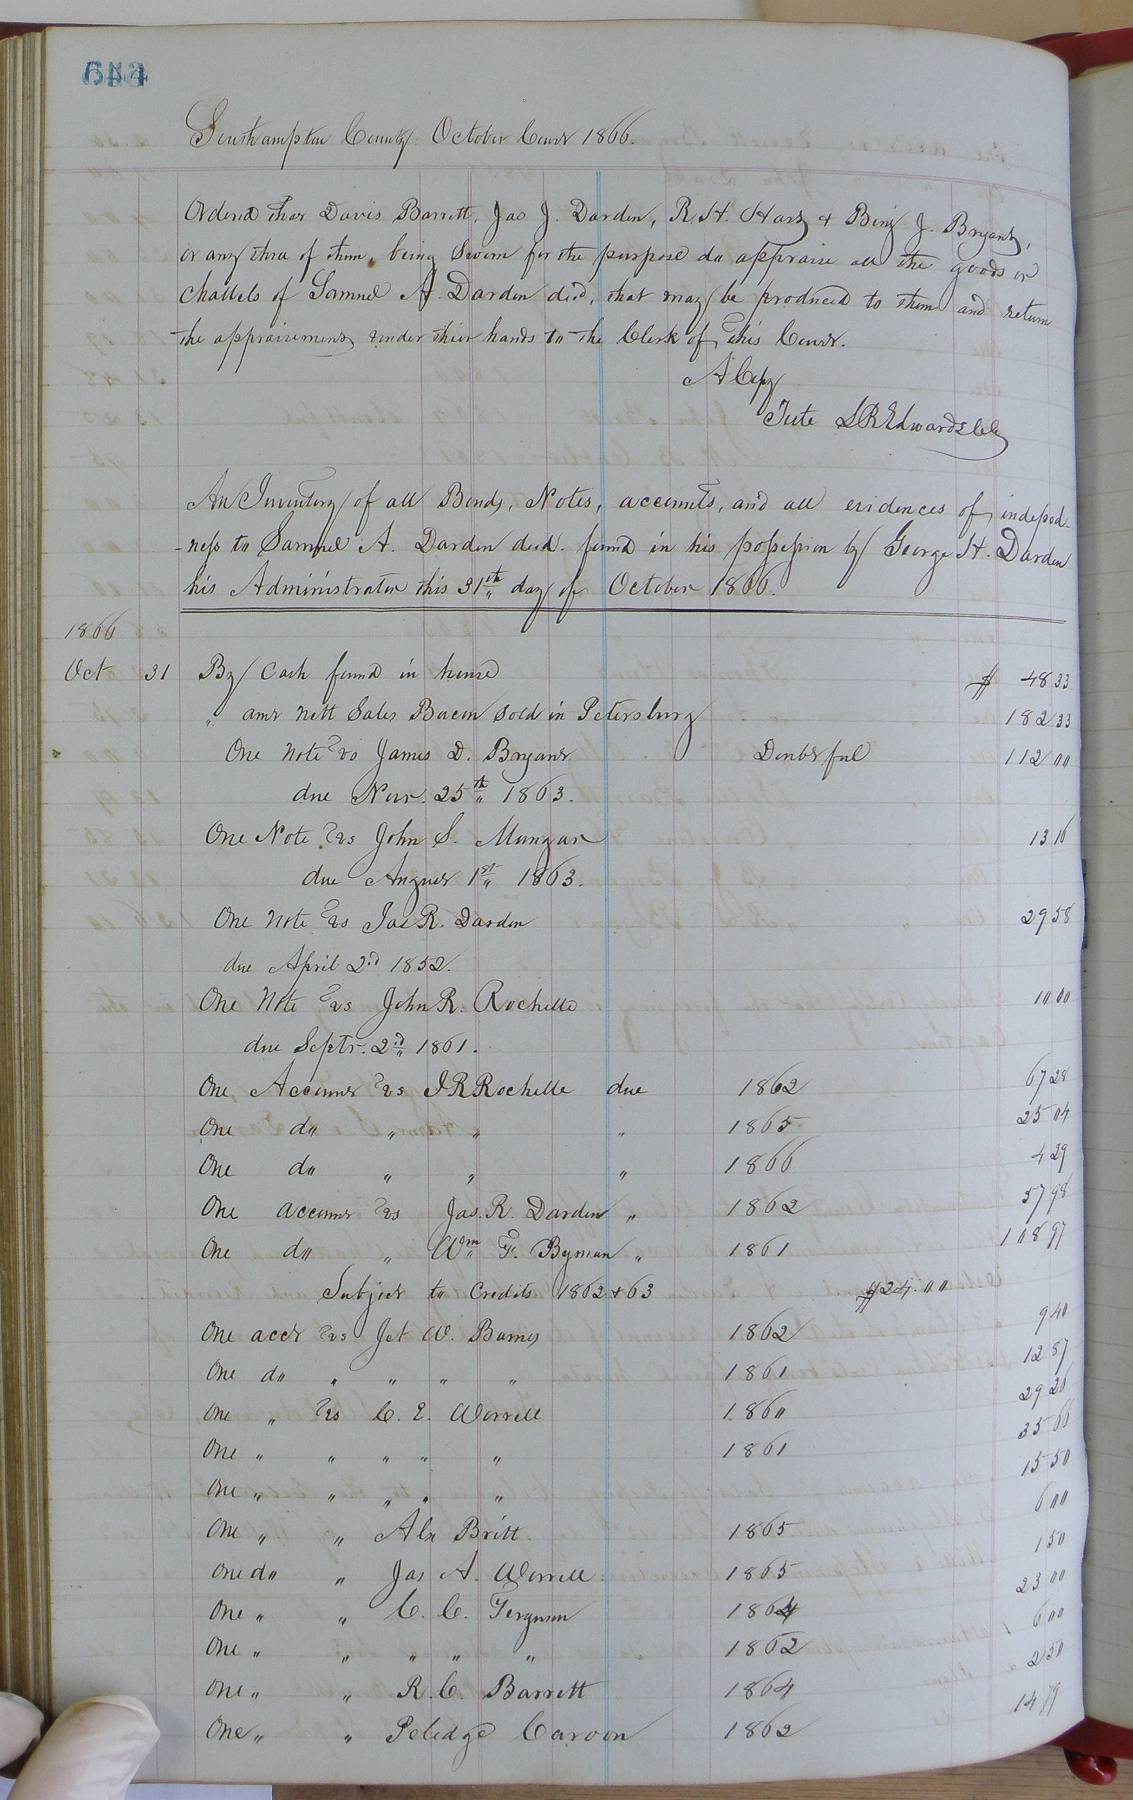 Southampton County October Court 1866.
Ordered that Davis Barrett, Jas J. Darden, R. H. Hart & Benj J. Bryant,
or any three of them, being sworn for the purpose do appraise all the goods or
chattels of Samuel A. Darden decd, that may be produced to them and return
the appraisement under their hands to the Clerk of this Court.
A Copy
Teste L R Edwards Clk
An Inventory of all Bonds, Notes, accounts, and all evidences of indepted-
-ness to Samuel A. Darden decd. found in his possession by George H. Darden
his Administrator this 31th day of October 1866.
1866
Oct 31 By Cash found in house $ 48 33
" amt nett Sales Bacon sold in Petersburg 182 33
One note vs James D. Bryant Doubtful 112 00
due Novr. 25th 1863.
One Note vs John S. Mungar 13 16
due August 1st 1863.
One note vs Jas R. Darden 29 58
due April 2d 1852.
One Note vs John R. Rochelle 10 00
due Septr. 2d 1861.
One Account vs J R Rochelle due 1862 67 28
One do " " " 1865 25 04
One do " " " 1866 4 29
One account vs Jas. R. Darden " 1862 57 98
One do " Wm F. Byman " 1861 108 97
Subject to Credits 1862 & 63 $24.00
One acct vs Jet W. Barnes 1862 9 40
One do " " " " 1861 12 87
One " vs C. E. Worrell 1860 29 26
One " " " " " 1861 35 66
One " " " " " 15 50
One " " Alx Britt. 1865 6 00
One do " Jas A. Worrell 1865 1 50
One " " C. C. Ferguson 1864 23 00
One " " " " " 1862 6 00
One " " R. C. Barrett 1864 2 50
One " " Peledge 1862 14 79